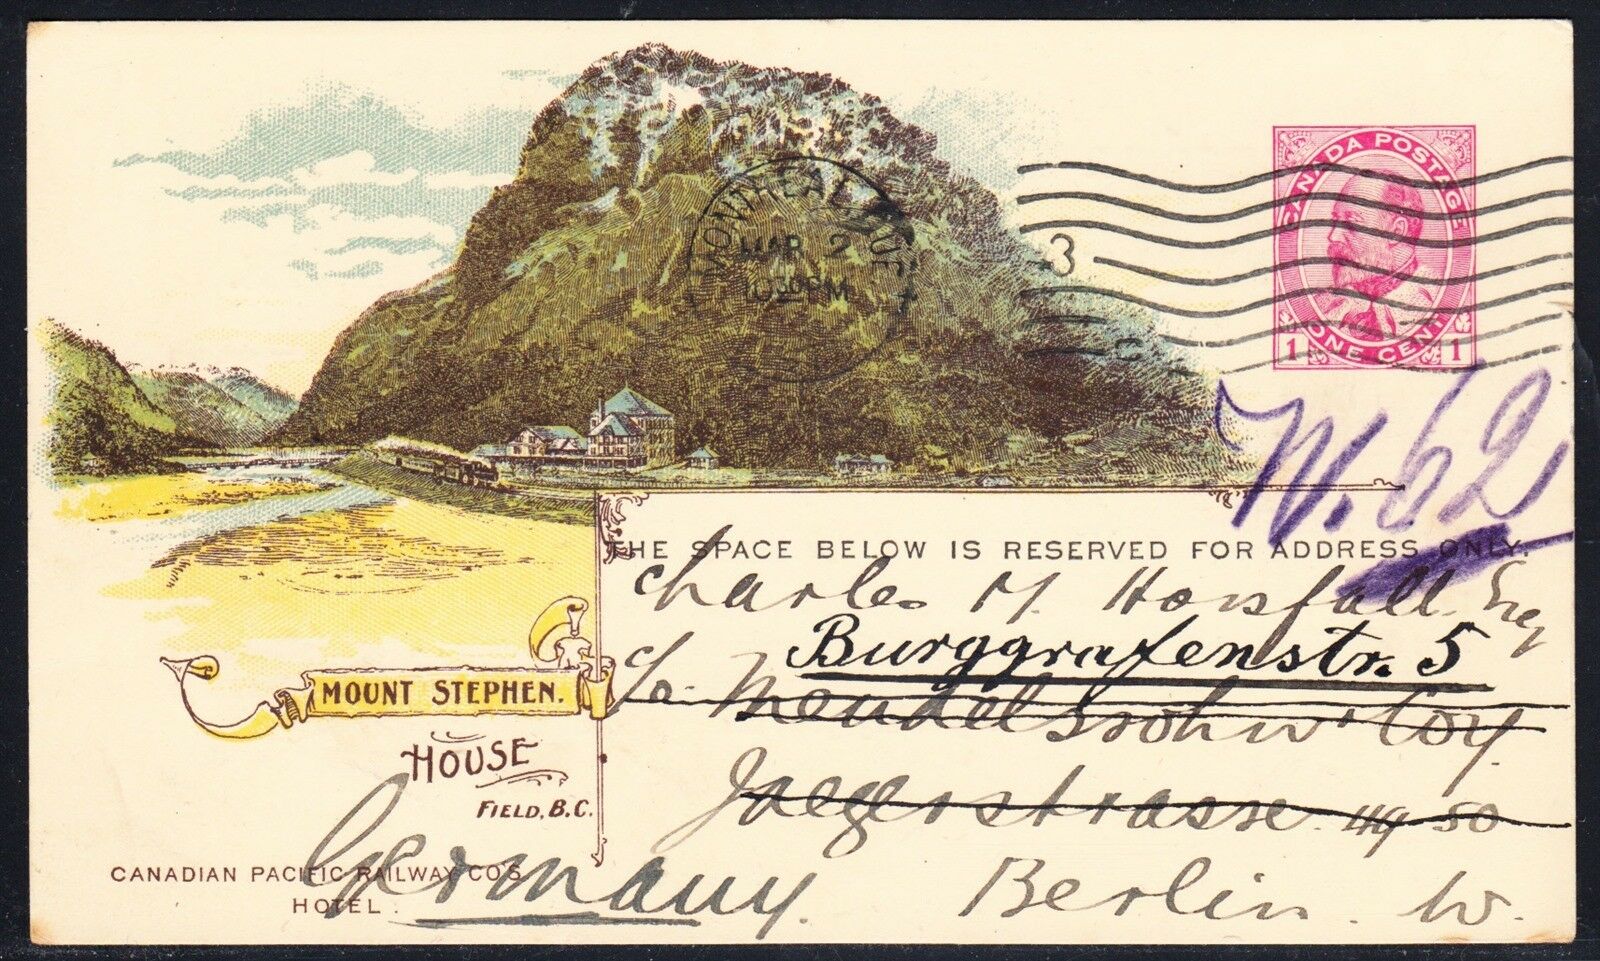 CANADA POSTAGE
1 ONE CENT 1
MONTREAL QUE
MAR 2
10 30 PM
3
C
W. 62
THE SPACE BELOW IS RESERVED FOR ADDRESS ONLY.
Charles M. Horsfall Esq
Burggrafenstr. 5
c/o Mendelssohn & Coy
Jaegerstrasse 49 50
Berlin. W.
Germany.
MOUNT STEPHEN.
HOUSE
FIELD, B.C.
CANADIAN PACIFIC RAILWAY CO'S
HOTEL.